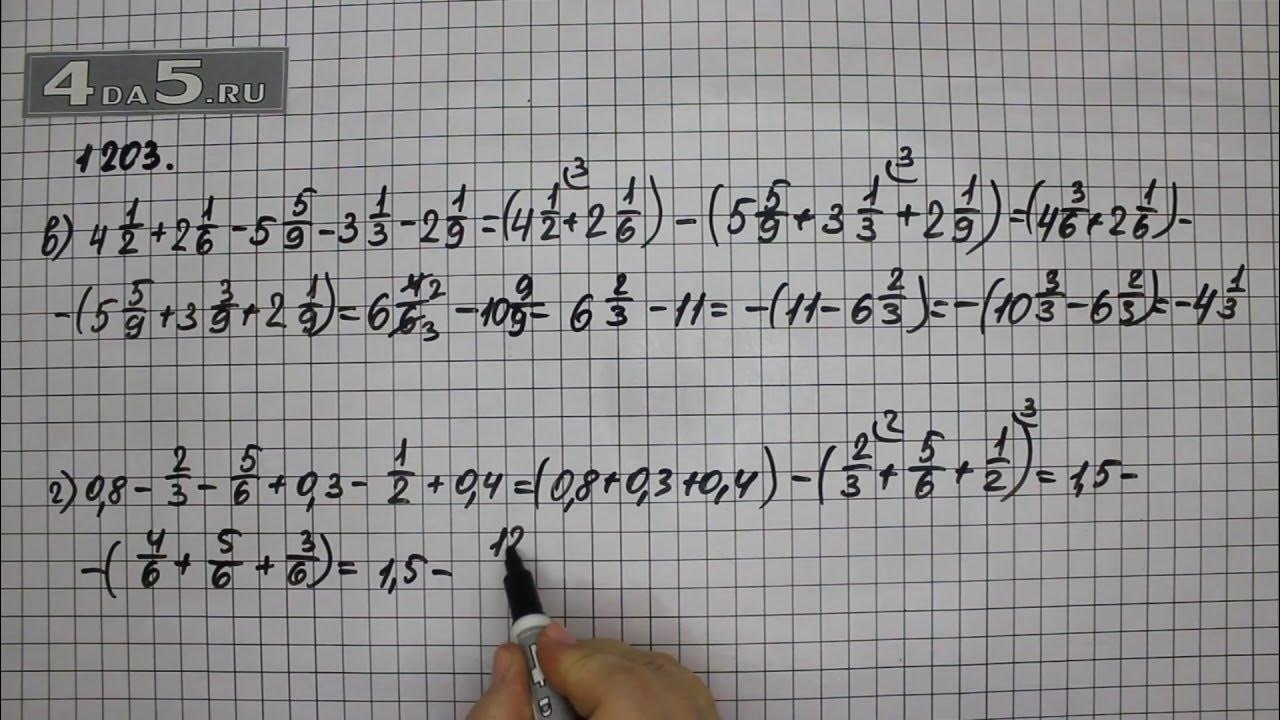 4DA5.RU
1203.
в) 4 1/2 + 2 1/6 - 5 5/9 - 3 1/3 - 2 1/9 = (4 1/2 + 2 1/6) - (5 5/9 + 3 1/3 + 2 1/9) = (4 3/6 + 2 1/6) -
- (5 5/9 + 3 3/9 + 2 1/9) = 6 4/6 2/3 - 10 9/9 = 6 2/3 - 11 = - (11 - 6 2/3) = - (10 3/3 - 6 2/3) = - 4 1/3
г) 0,8 - 2/3 - 5/6 + 0,3 - 1/2 + 0,4 = (0,8 + 0,3 + 0,4) - (2/3 + 5/6 + 1/2) = 1,5 -
- (4/6 + 5/6 + 3/6) = 1,5 - 12